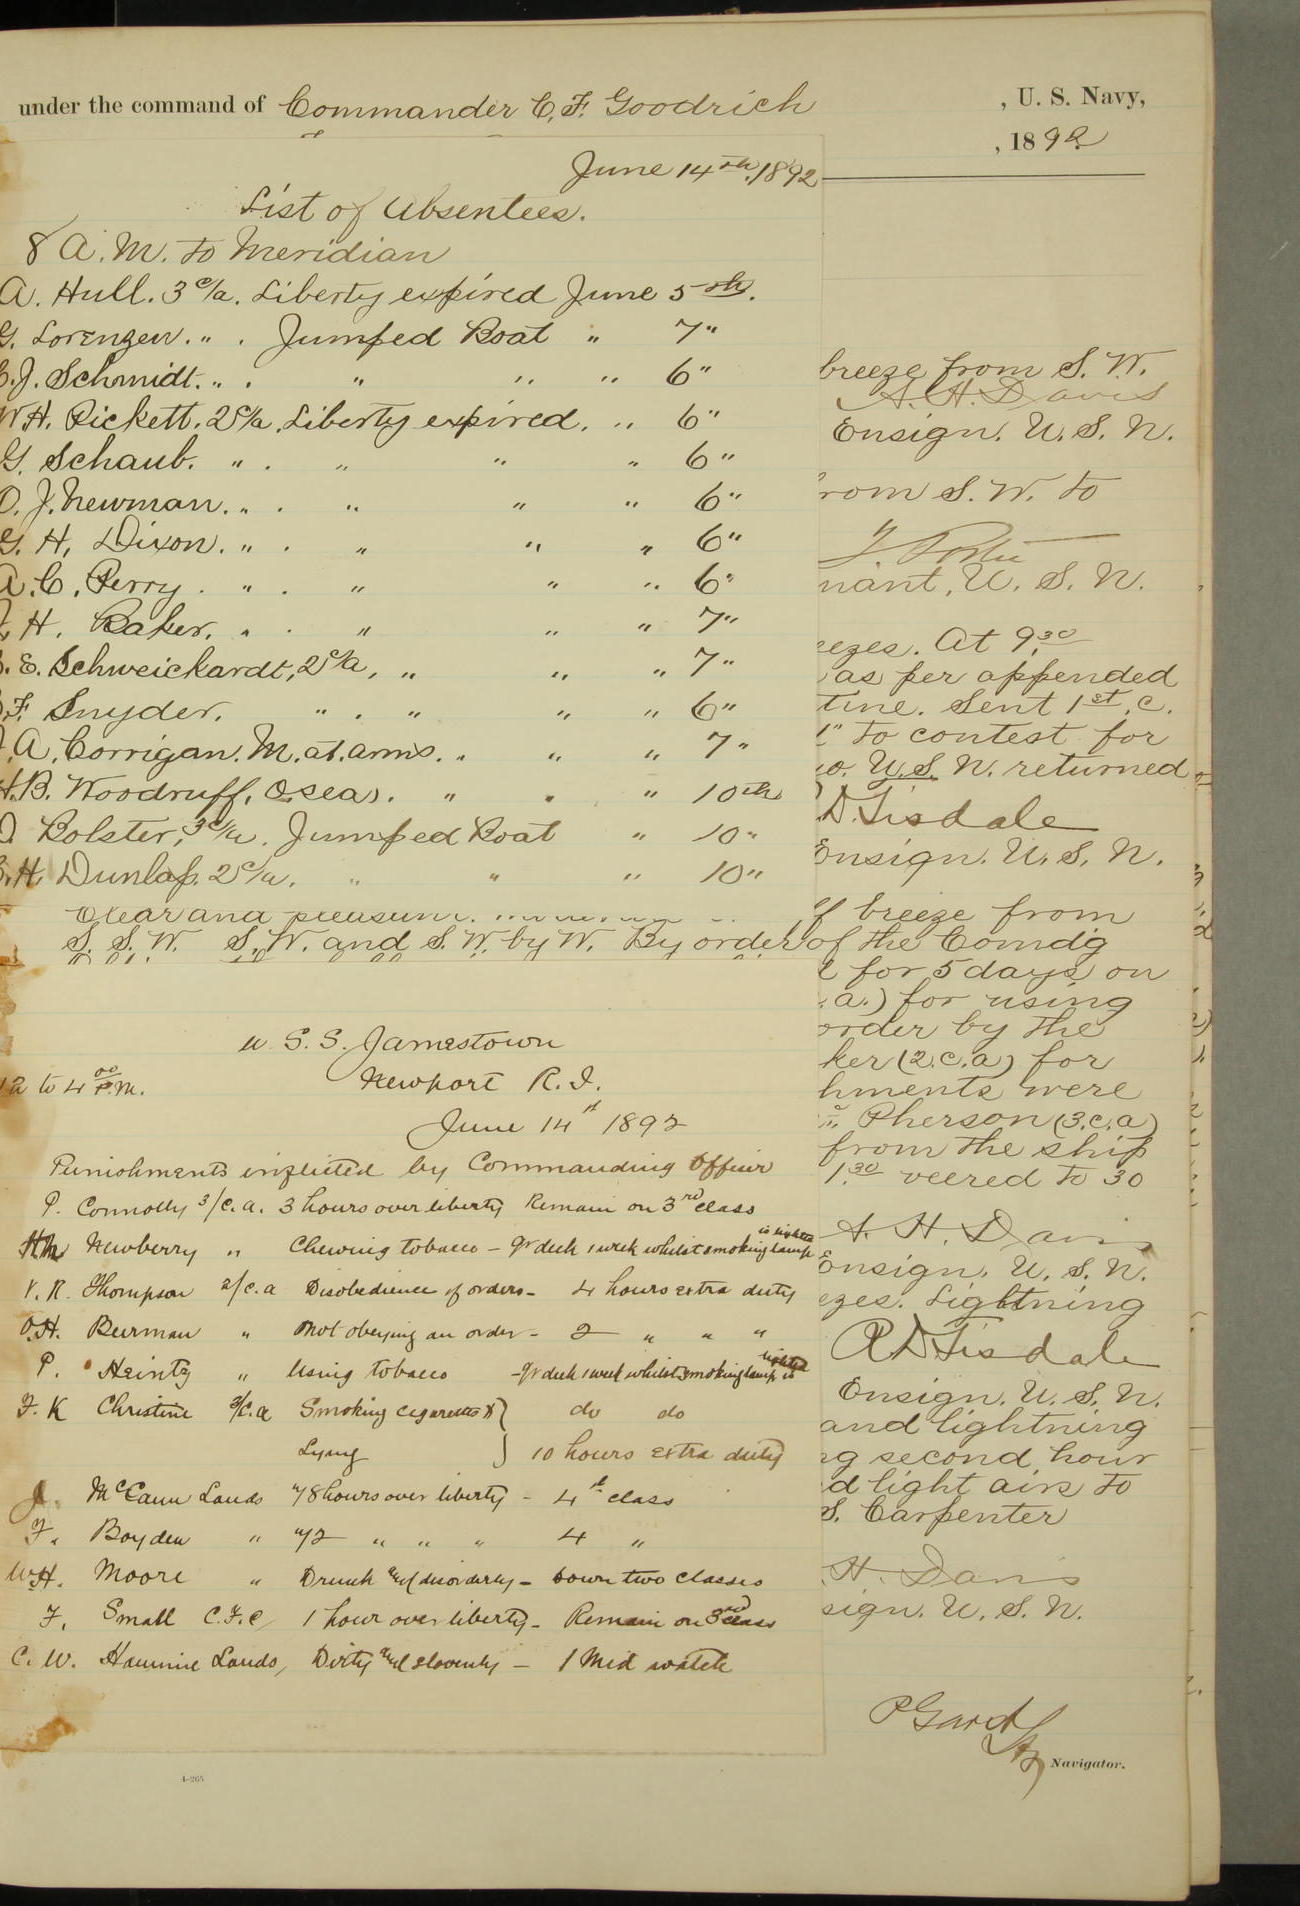 under the command of Commander C. F. Goodrich , U. S. Navy,
, 1892
June 14th, 1892
List of Absentees.
8 A. M. to Meridian
A. Hull. 3 c/a. Liberty expired June 5th.
G. Lorenzen. " . Jumped Boat " 7"
J. Schmidt. " . " " " 6"
W H. Rickett. 2 c/a. Liberty expired. " 6"
G. Schaub. " . " " " 6"
O. J. Newman. " . " " " 6"
G. H. Dixon. " . " " " 6"
A. C. Perry . " . " " " 6"
H. Baker. " . " " " 7"
E. Schweickardt, 2 c/a. " " " 7"
F. Snyder. " . " " " 6"
A. Corrigan. M. at. arms. " " " 7"
H. B. Woodruff, O. Sea). " " " 10th
Bolster, 3 c/a. Jumped Boat " 10"
H. Dunlap. 2 c/a. " " " 10"
Clear and pleasant.
S. S. W. S. W. and S. W. by W. By order
U. S. S. Jamestown
12 to 4 00 P. M. Newport R. I.
June 14th 1892
Punishments inflicted by Commanding Officer
P. Connolly 3/c. a. 3 hours over liberty Remain on 3rd class
Newberry " Chewing tobacco - Qr deck 1 week whilst smoking lamp is lighted
V. R. Thompson 2/c. a Disobedience of orders - 4 hours extra duty
O. H. Burman " Not obeying an order - 2 " " "
P. Heintz " Using tobacco - Qr deck 1 week whilst smoking lamp is lighted
F. K Christine 3/c. a Smoking cigarettes & } do do
Lying } 10 hours extra duty
J. McCann Lands 78 hours over liberty - 4th class
F. Boyden " 72 " " " 4 "
W. H. Moore " Drunk and disorderly - Down two classes
F. Small C. F. C 1 hour over liberty - Remain on 3rd class
C. W. Lands, Dirty and slovenly - 1 Mid watch
breeze from S. W.
A. H. Davis
Ensign. U. S. N.
from S. W. to
nant, U. S. N.
ezes. At 9.30
as per appended
tine. Sent 1st. C.
" to contest for
o. U. S. N. returned
D Tisdale
Ensign. U. S. N.
f breeze from
of the Comdg
for 5 days on
. a.) for using
order by the
ker (2. c. a) for
hments were
Pherson (3. c. a)
from the ship
1.30 veered to 30
A. H. Davis
Ensign. U. S. N.
ezes. Lightning
R D Tisdale
Ensign. U. S. N.
and lightning
ng second hour
d light airs to
S. Carpenter
H. Davis
sign. U. S. N.
Navigator.
4-265